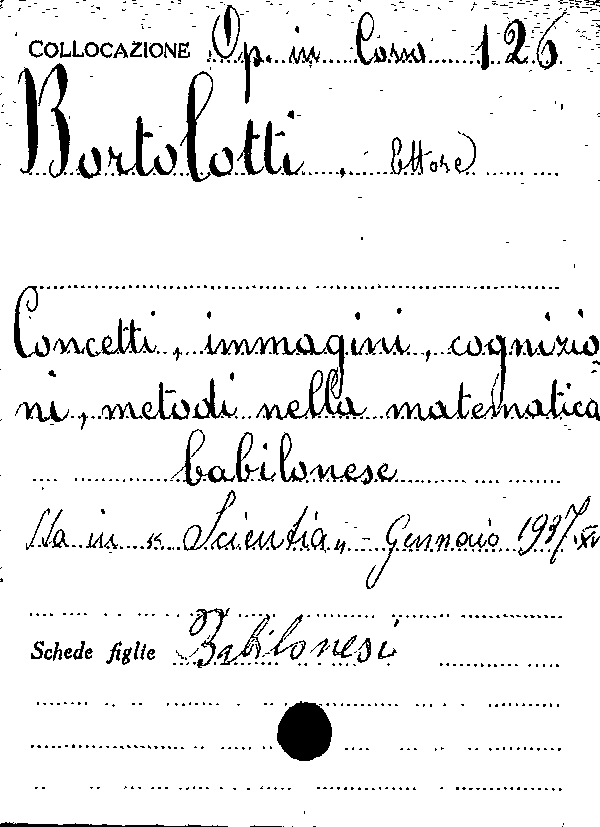 COLLOCAZIONE Op. in Corso 126
Bortolotti, Ettore
Concetti, immagini, cognizio
ni, metodi nella matematica
babilonese
Sta in « Scientia » - Gennaio 1937. XV
Schede figlie Babilonesi